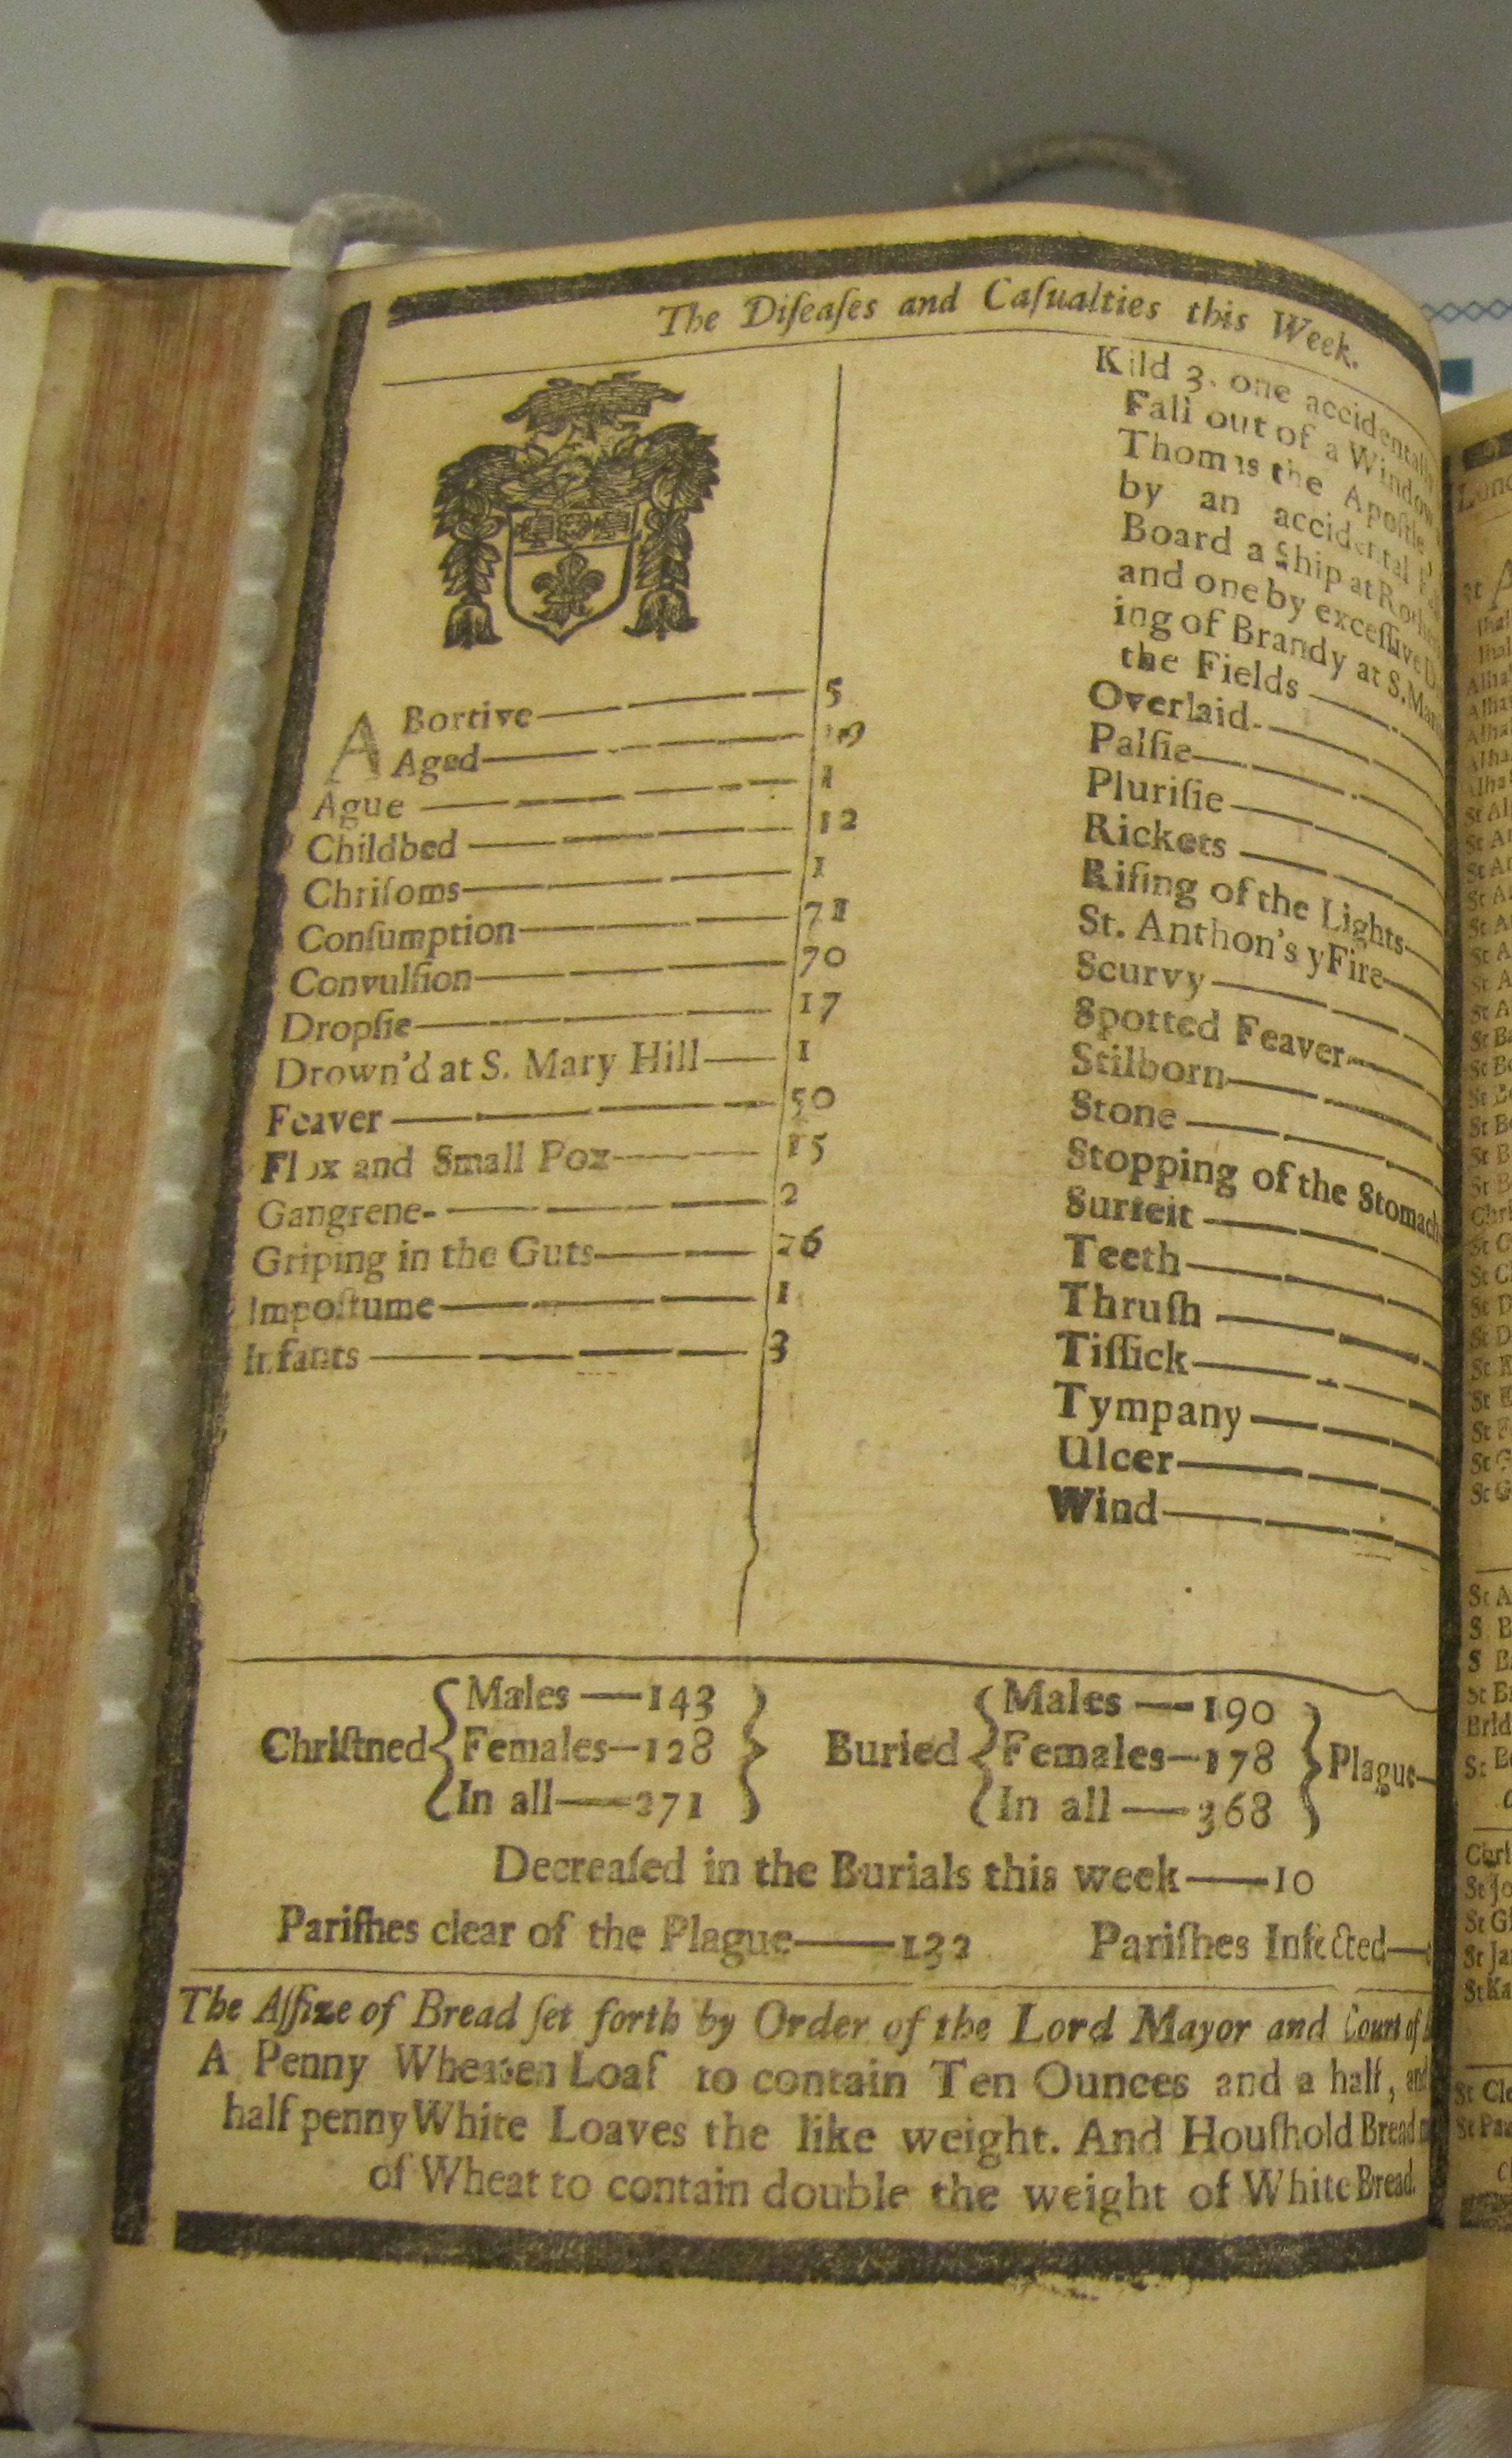 The Diſeaſes and Caſualties this Week.
ABortive 5
Aged
Ague 1
Childbed 12
Chriſoms 1
Conſumption 71
Convulſion 70
Dropſie 17
Drown'd at S. Mary Hill 1
Feaver 50
Flox and Small Pox 15
Gangrene 2
Griping in the Guts 26
Impoſtume 1
Infants 3
Kild 3. one accidentally
Fall out of a Window
Thomas the Apoſtle,
by an accidental
Board a Ship at
and one by exceſſive
ing of Brandy at S.
the Fields
Overlaid
Palſie
Pluriſie
Rickets
Riſing of the Lights
St. Anthon's yFire
Scurvy
Spotted Feaver
Stilborn
Stone
Stopping of the Stomach
Surfeit
Teeth
Thruſh
Tiſſick
Tympany
Ulcer
Wind
Chriſtned { Males — 143 Females — 128 In all — 271 }
Buried { Males — 190 Females — 178 In all — 368 } Plague
Decreaſed in the Burials this week — 10
Pariſhes clear of the Plague — 132 Pariſhes Infected
The Aſſize of Bread ſet forth by Order of the Lord Mayor and Court of
A Penny Wheaten Loaf to contain Ten Ounces and a half, and
half penny White Loaves the like weight. And Houſhold Bread
of Wheat to contain double the weight of White Bread.